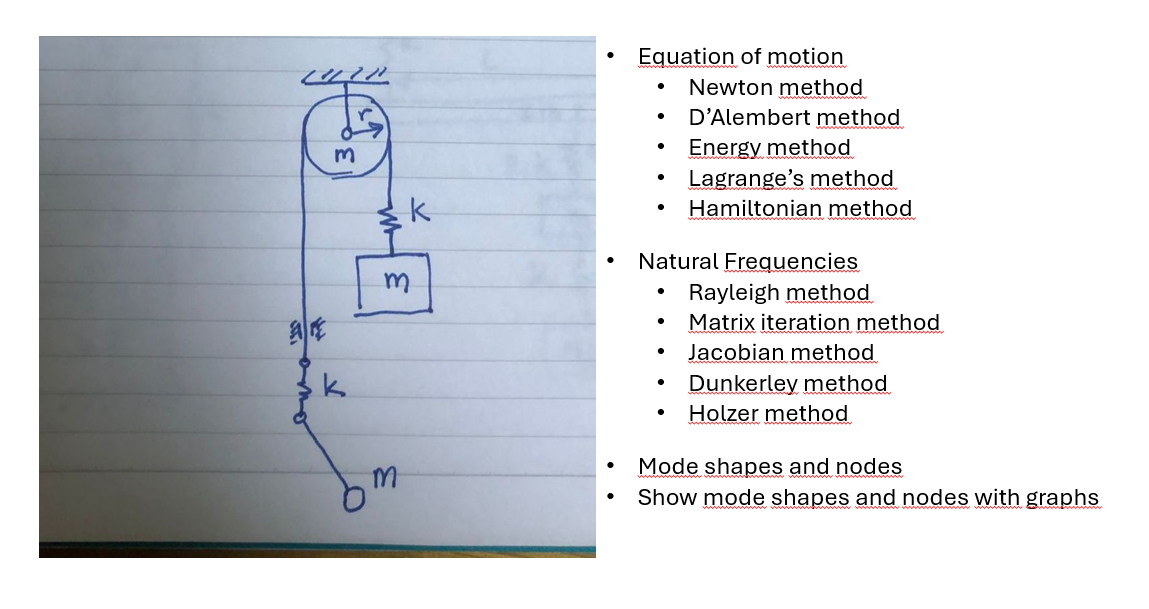 r
m
k
m
k
m
• Equation of motion
• Newton method
• D’Alembert method
• Energy method
• Lagrange’s method
• Hamiltonian method
• Natural Frequencies
• Rayleigh method
• Matrix iteration method
• Jacobian method
• Dunkerley method
• Holzer method
• Mode shapes and nodes
• Show mode shapes and nodes with graphs